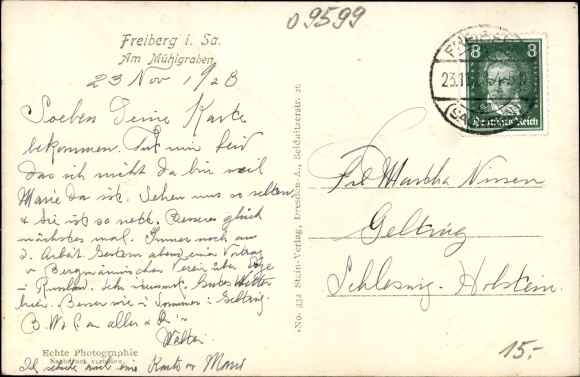 09599
Freiberg i. Sa.
Am Mühlgraben
23 Nov 1928
Soeben Deine Karte
bekommen. Tut mir leid
das ich nicht da bin weil
Marie da ist. Sehen uns so selten
& Sie ist so nett. Besseres glück
nächstes mal. Immer noch am
d. Arbeit. Gestern abend einen Vortrag
v Bergmännischen Verein über
i Russland. Sehr interessant. Gutes Wetter
hier. Besser wie i Sommer i Gelting.
B. W. G. an alle & Dir
Walter
Ich schicke noch eine Karte v Marie
Echte Photographie
Nachdruck verboten
No. 332 Stein-Verlag, Dresden-A., Seidnitzerstr. 26
8 8
Deutsches Reich
FREIBERG
23.11.
(SACHSEN)
Frl Martha Nissen
Gelting
Schleswig-Holstein.
15.-